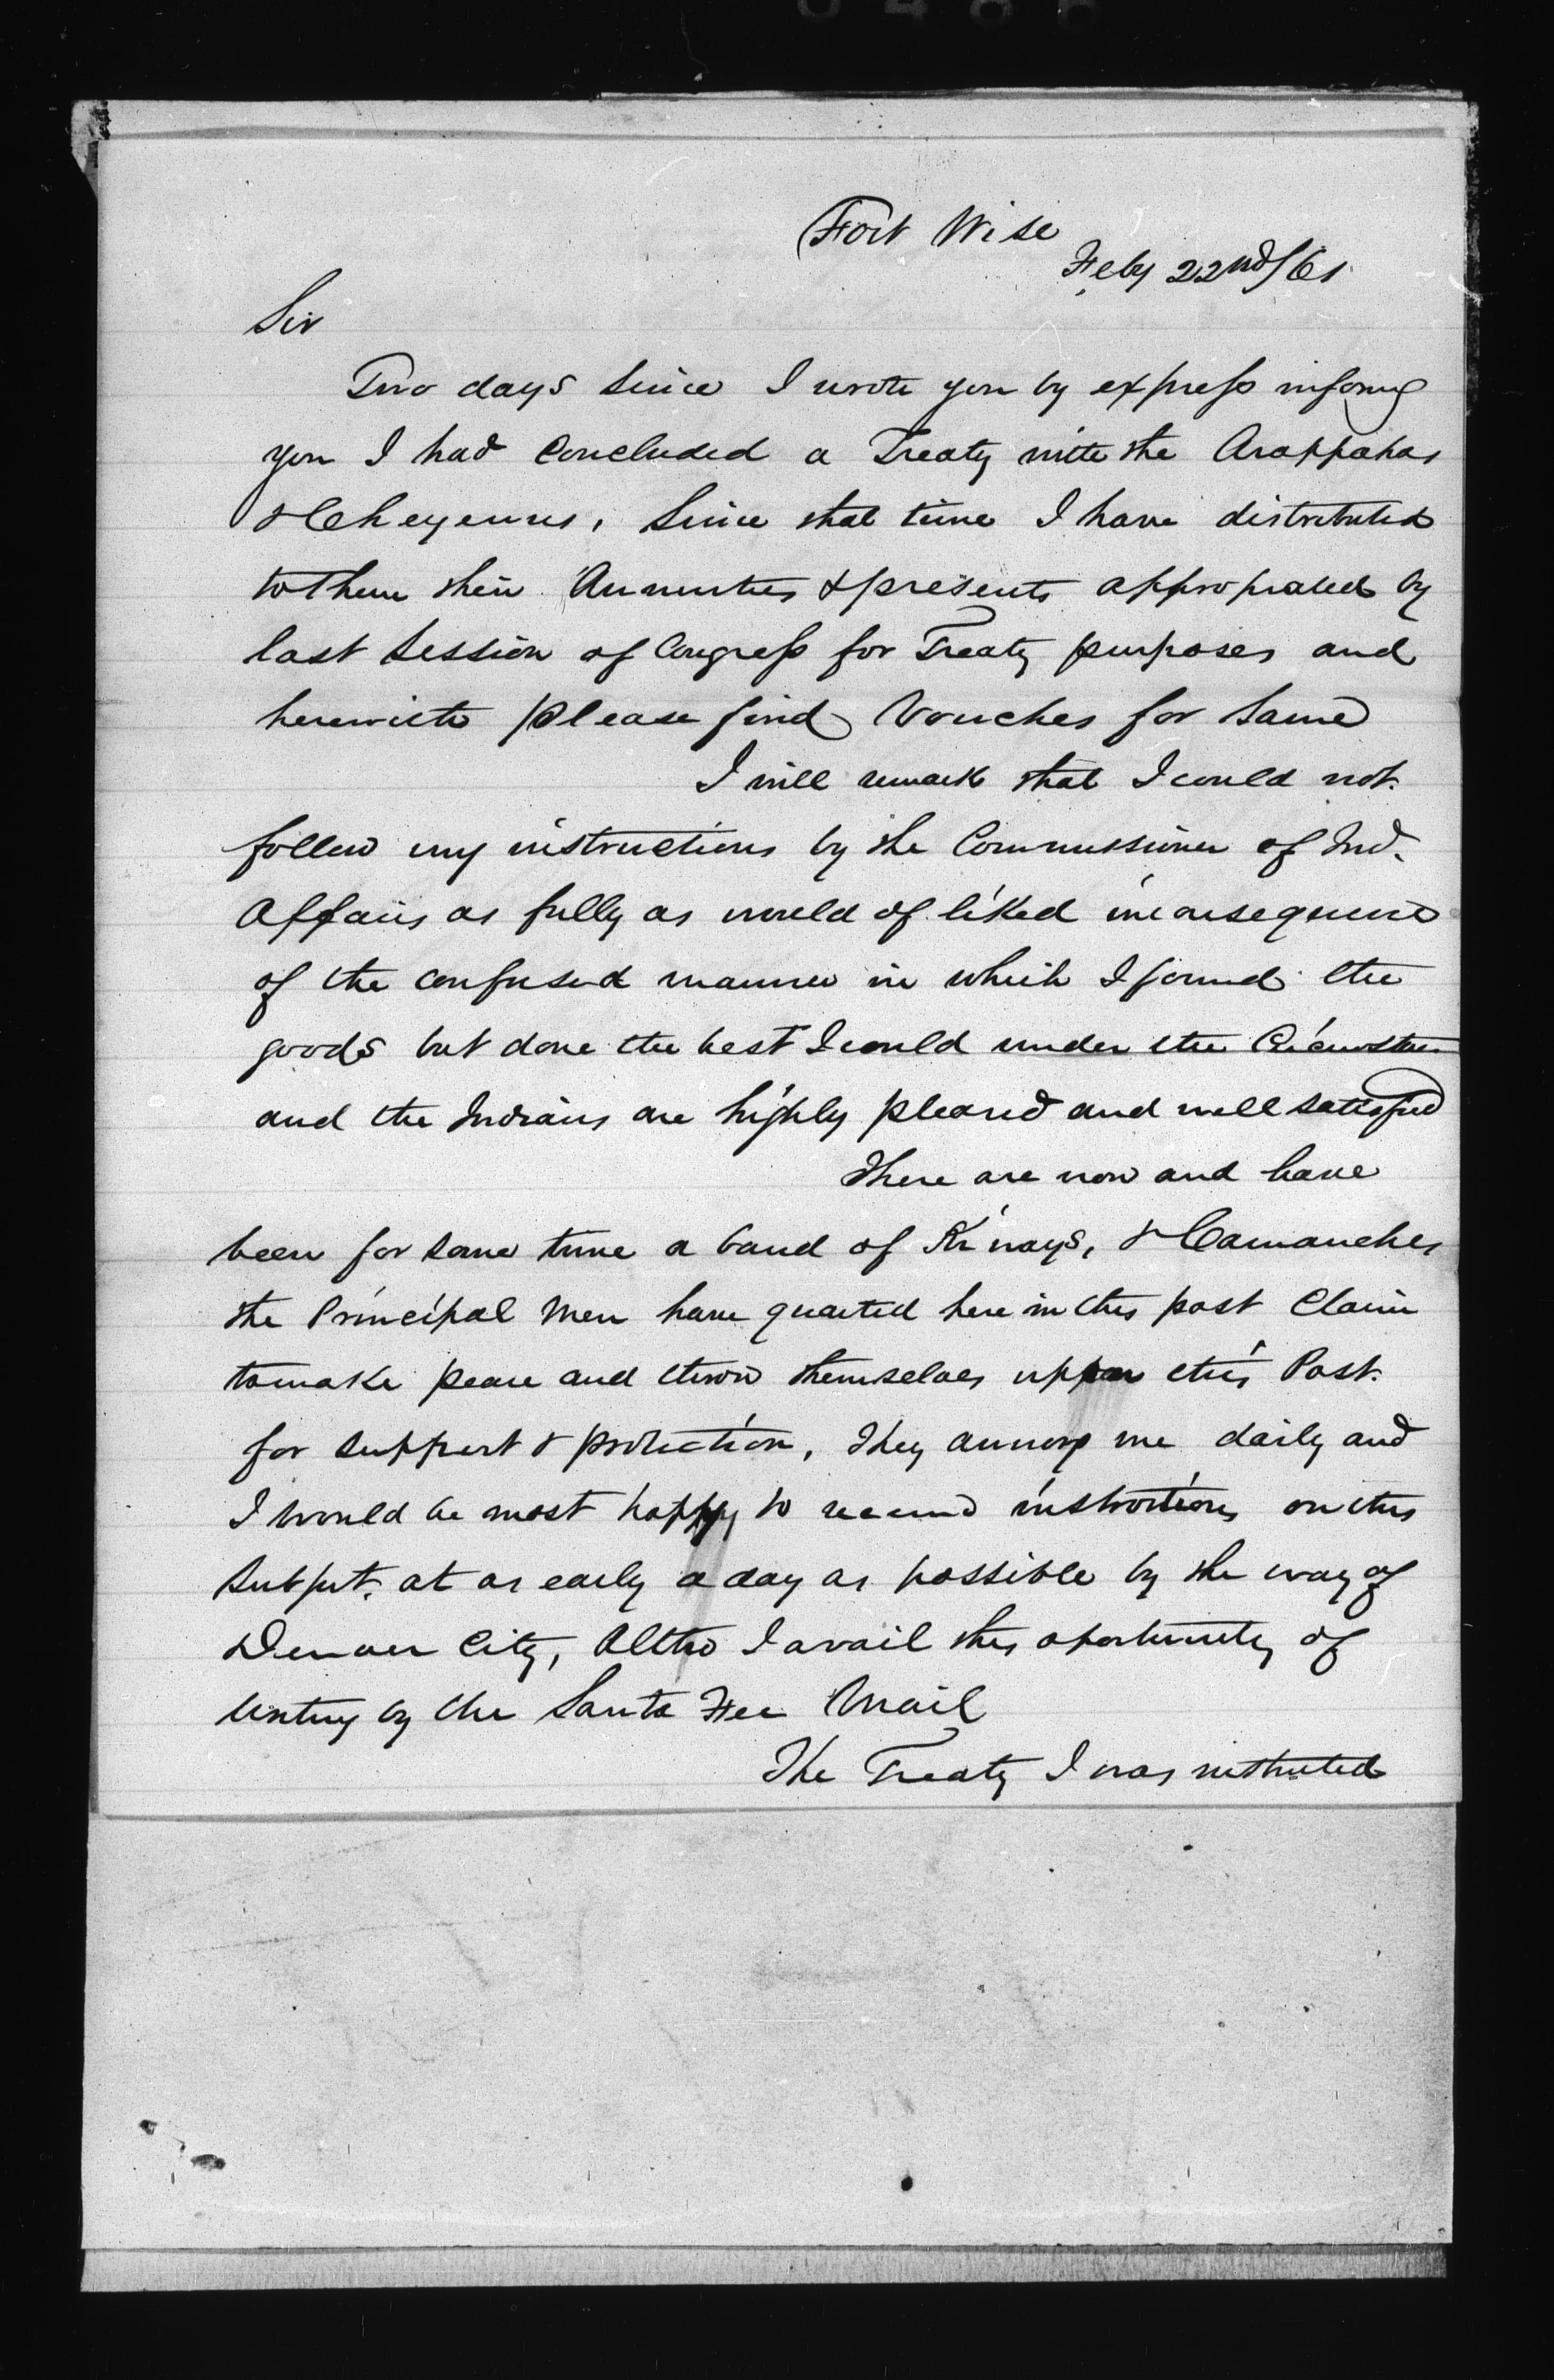 Fort Wise
Feby 22nd/61
Sir
Two days since I wrote you by express informg
you I had Concluded a Treaty with the Arappahas
& Cheyennes, Since that time I have distributed
to them their Annuities & presents appropriated by
last Session of Congress for Treaty purposes and
herewith please find Vouches for Same
I will remark that I could not
follow my instructions by the Commissioner of Ind.
Affairs as fully as would of liked in consequence
of the confused manner in which I found the
goods but done the best I could under the
and the Indians are highly pleased and well satisfied
There are now and have
been for some time a band of Ki'ways, & Camanches
the Principal Men have here in this post Claim
to make peace and throw themselves uppon this Post
for support & protection, They annoy me daily and
I would be most happy to receive instructions on this
Subject, at as early a day as possible by the way of
Denver City, Altho I avail this oportunity of
by the Santa Fee Mail
The Treaty I was instructed